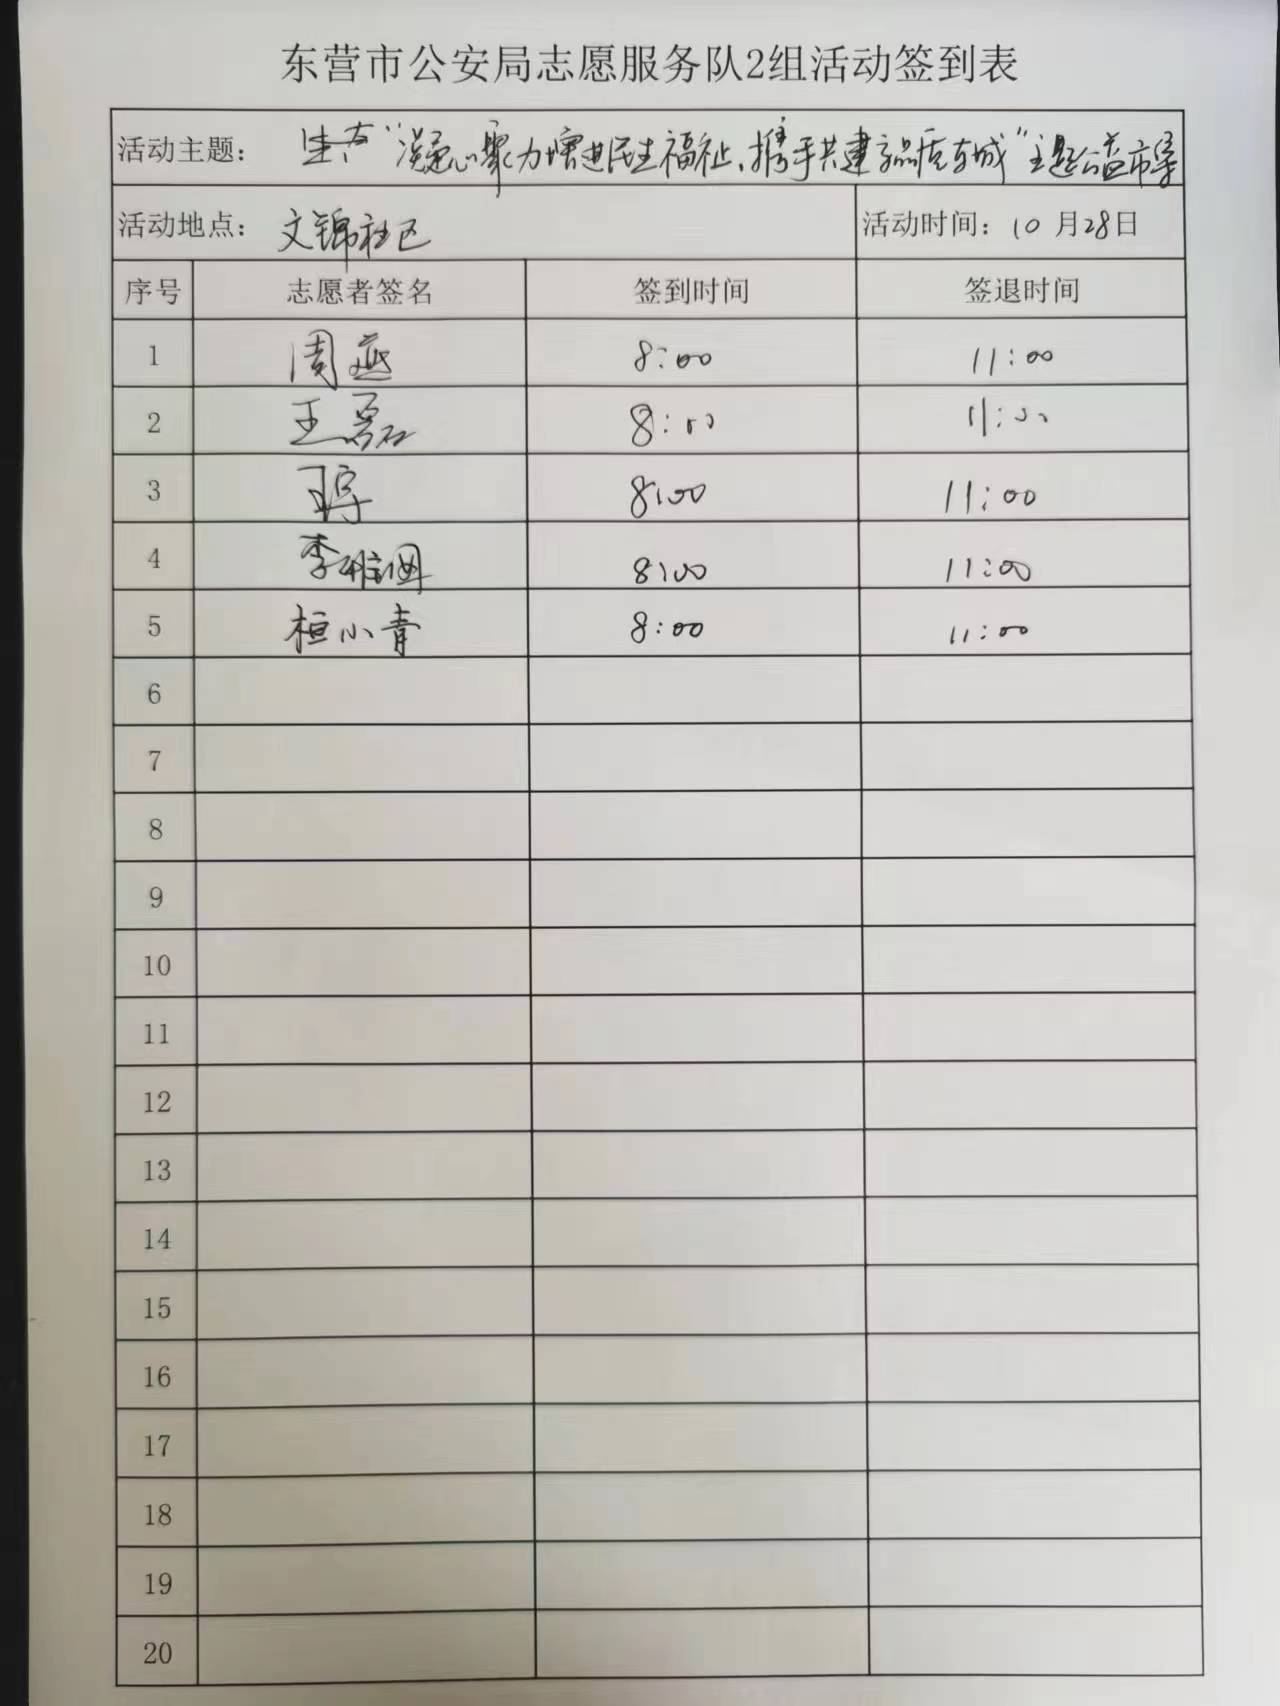 东营市公安局志愿服务队2组活动签到表
活动主题: "凝心聚力增进民生福祉、携手共建品质东城"主题公益市集
活动地点: 文锦社区 活动时间: 10月28日
序号 志愿者签名 签到时间 签退时间
1 周燕 8:00 11:00
2 王磊 8:00 11:00
3 8:00 11:00
4 李 8:00 11:00
5 桓小青 8:00 11:00
6
7
8
9
10
11
12
13
14
15
16
17
18
19
20